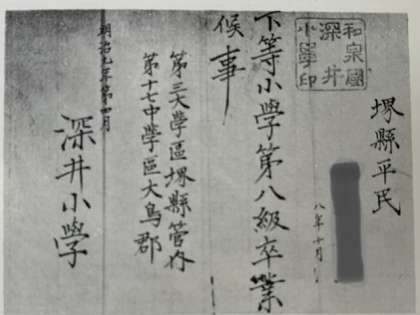 堺縣平民
八年十月
和泉國
深井
小學印
下等小學第八級卒業
候事
第三大學區堺縣管内
第十七中學區大鳥郡
深井小學
明治九年第四月